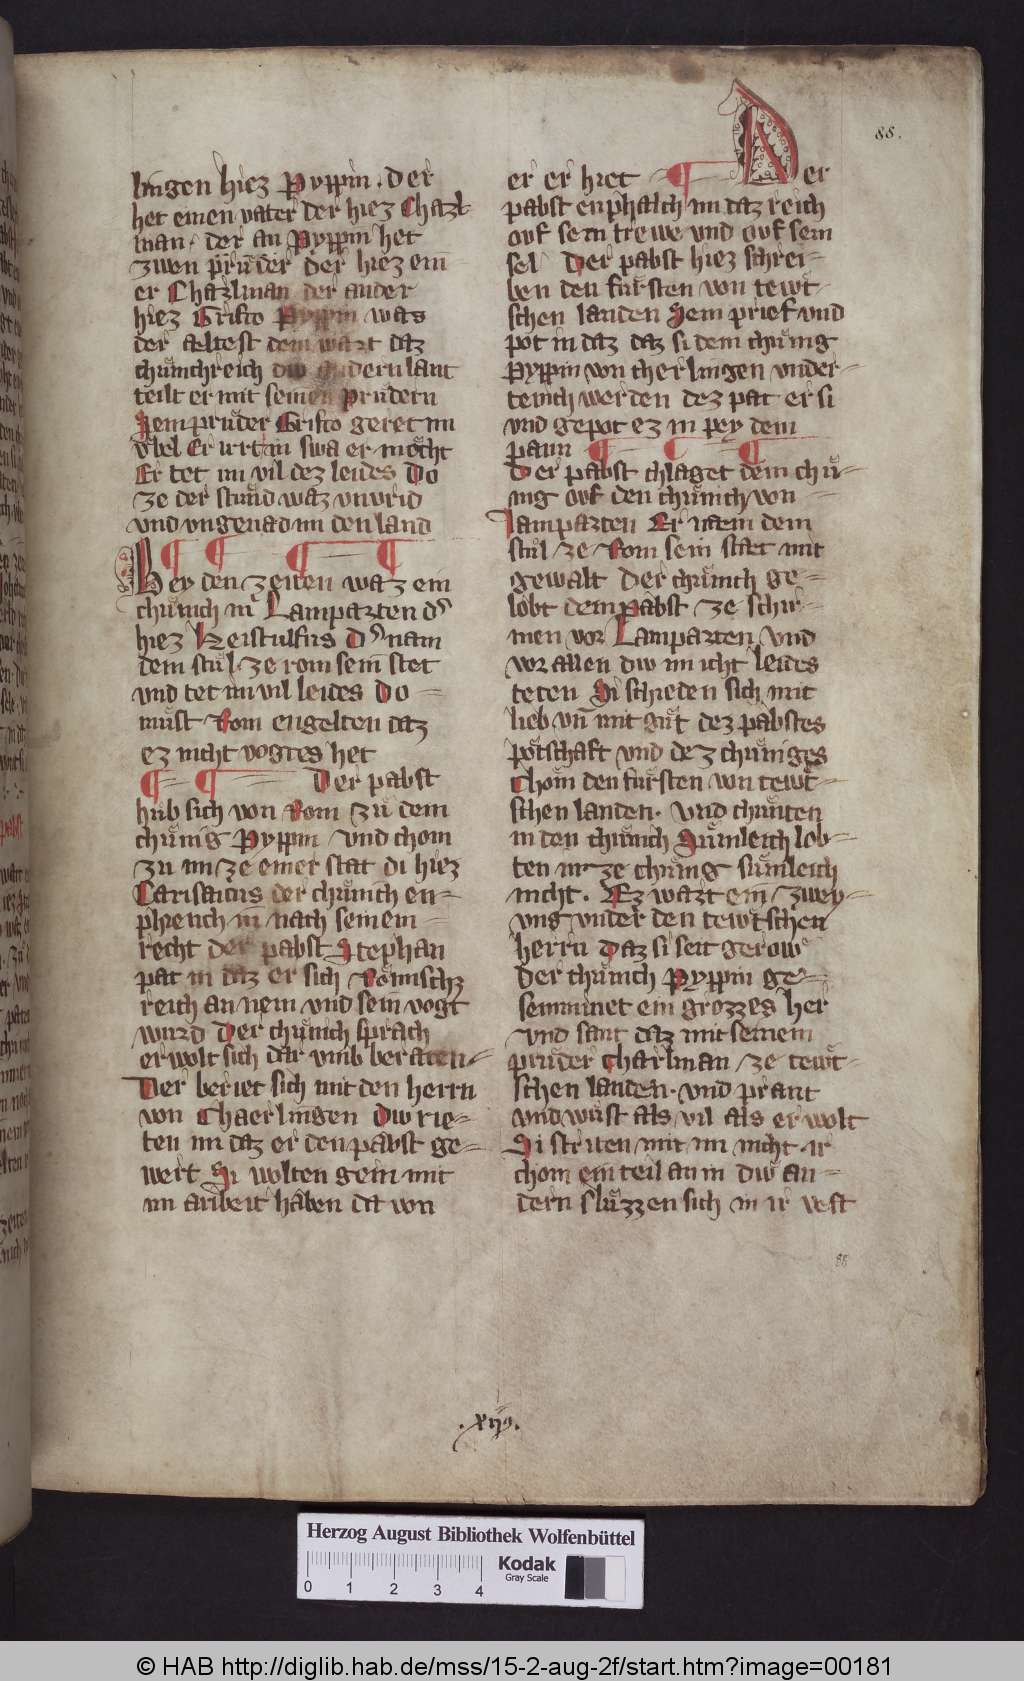 88.
lingen hiez Pyppin . der
het einen vater der hiez Charl
man . der an Pyppin het
zwen průder der hiez ein
er Charlman der ander
hiez Grifto Pyppin was
der aeltest dem wart daz
chůnichreich diw andern lant
teilt er mit seinen průdern
Sein průder Grifto geriet im
vbel Er irrt in swa er moͤcht
Er tet im vil dez leides Do
ze der stund waz vnvrid
vnd vngenad in den land
Bey den zeiten waz ein
chůnich in Lamparten dˢ
hiez Heistulfus dˢ nam
dem stůl ze rom sein stet
vnd tet im vil leides Do
můst Rom engelten daz
ez nicht vogtes het
Der pabst
hub sich von Rom zů dem
chůnig Pyppin vnd chom
zu im ze einer stat di hiez
Carisiacus der chůnich en-
phiench in nach seinem
recht der pabst Stephan
pat in daz er sich Roͤmischz
reich an nem vnd sein vogt
wurd Der chůnich sprach
er wolt sich dar vmb beraten
Der beriet sich mit den herrn
von Chaerlingen Diw rie-
ten im daz er den pabst ge-
wert Si wolten gern mit
im aribeit haben da von
er er hiet Der
pabst enphalch im daz reich
ovf sein trewe vnd ovf sein
sel Der pabst hiez schrei-
ben den fuͤrsten von tewt
schen landen Sein prief vnd
pot in daz daz si dem chůnig
Pyppin von cherlingen vnder-
tenich werden dez pat er si
vnd gepot ez in pey dem
pann
Der pabst chlaget dem chů-
nig ovf den chůnich von
Lamparten Er naem dem
stůl ze Rom sein staet mit
gewalt Der chůnich ge-
lobt dem pabst ze schir-
men vor Lamparten vnd
vor allen diw im icht leides
teten Si schieden sich mit
lieb vn̄ mit gůt dez pabstes
potschaft vnd dez chůniges
Chom den fuͤrsten von tewt-
schen landen . vnd chunten
in den chůnich Sůmleich lob-
ten in ze chůnig sůmleich
nicht . Ez wart ein zwey-
vng vnder den tewtschen
herrn Daz si seit gerow
Der chůnich Pyppin ge-
semmnet ein grozzes her
vnd sant daz mit seinem
průder Charlman ze tewt-
schen landen . vnd prant
vnd wůst als vil als er wolt
Si striten mit im nicht ir
chom ein teil an in diw an-
dern sluzzen sich in ir vest
88
.xijꝰ.
Herzog August Bibliothek Wolfenbüttel
0 1 2 3 4
Kodak
Gray Scale
© HAB http://diglib.hab.de/mss/15-2-aug-2f/start.htm?image=00181